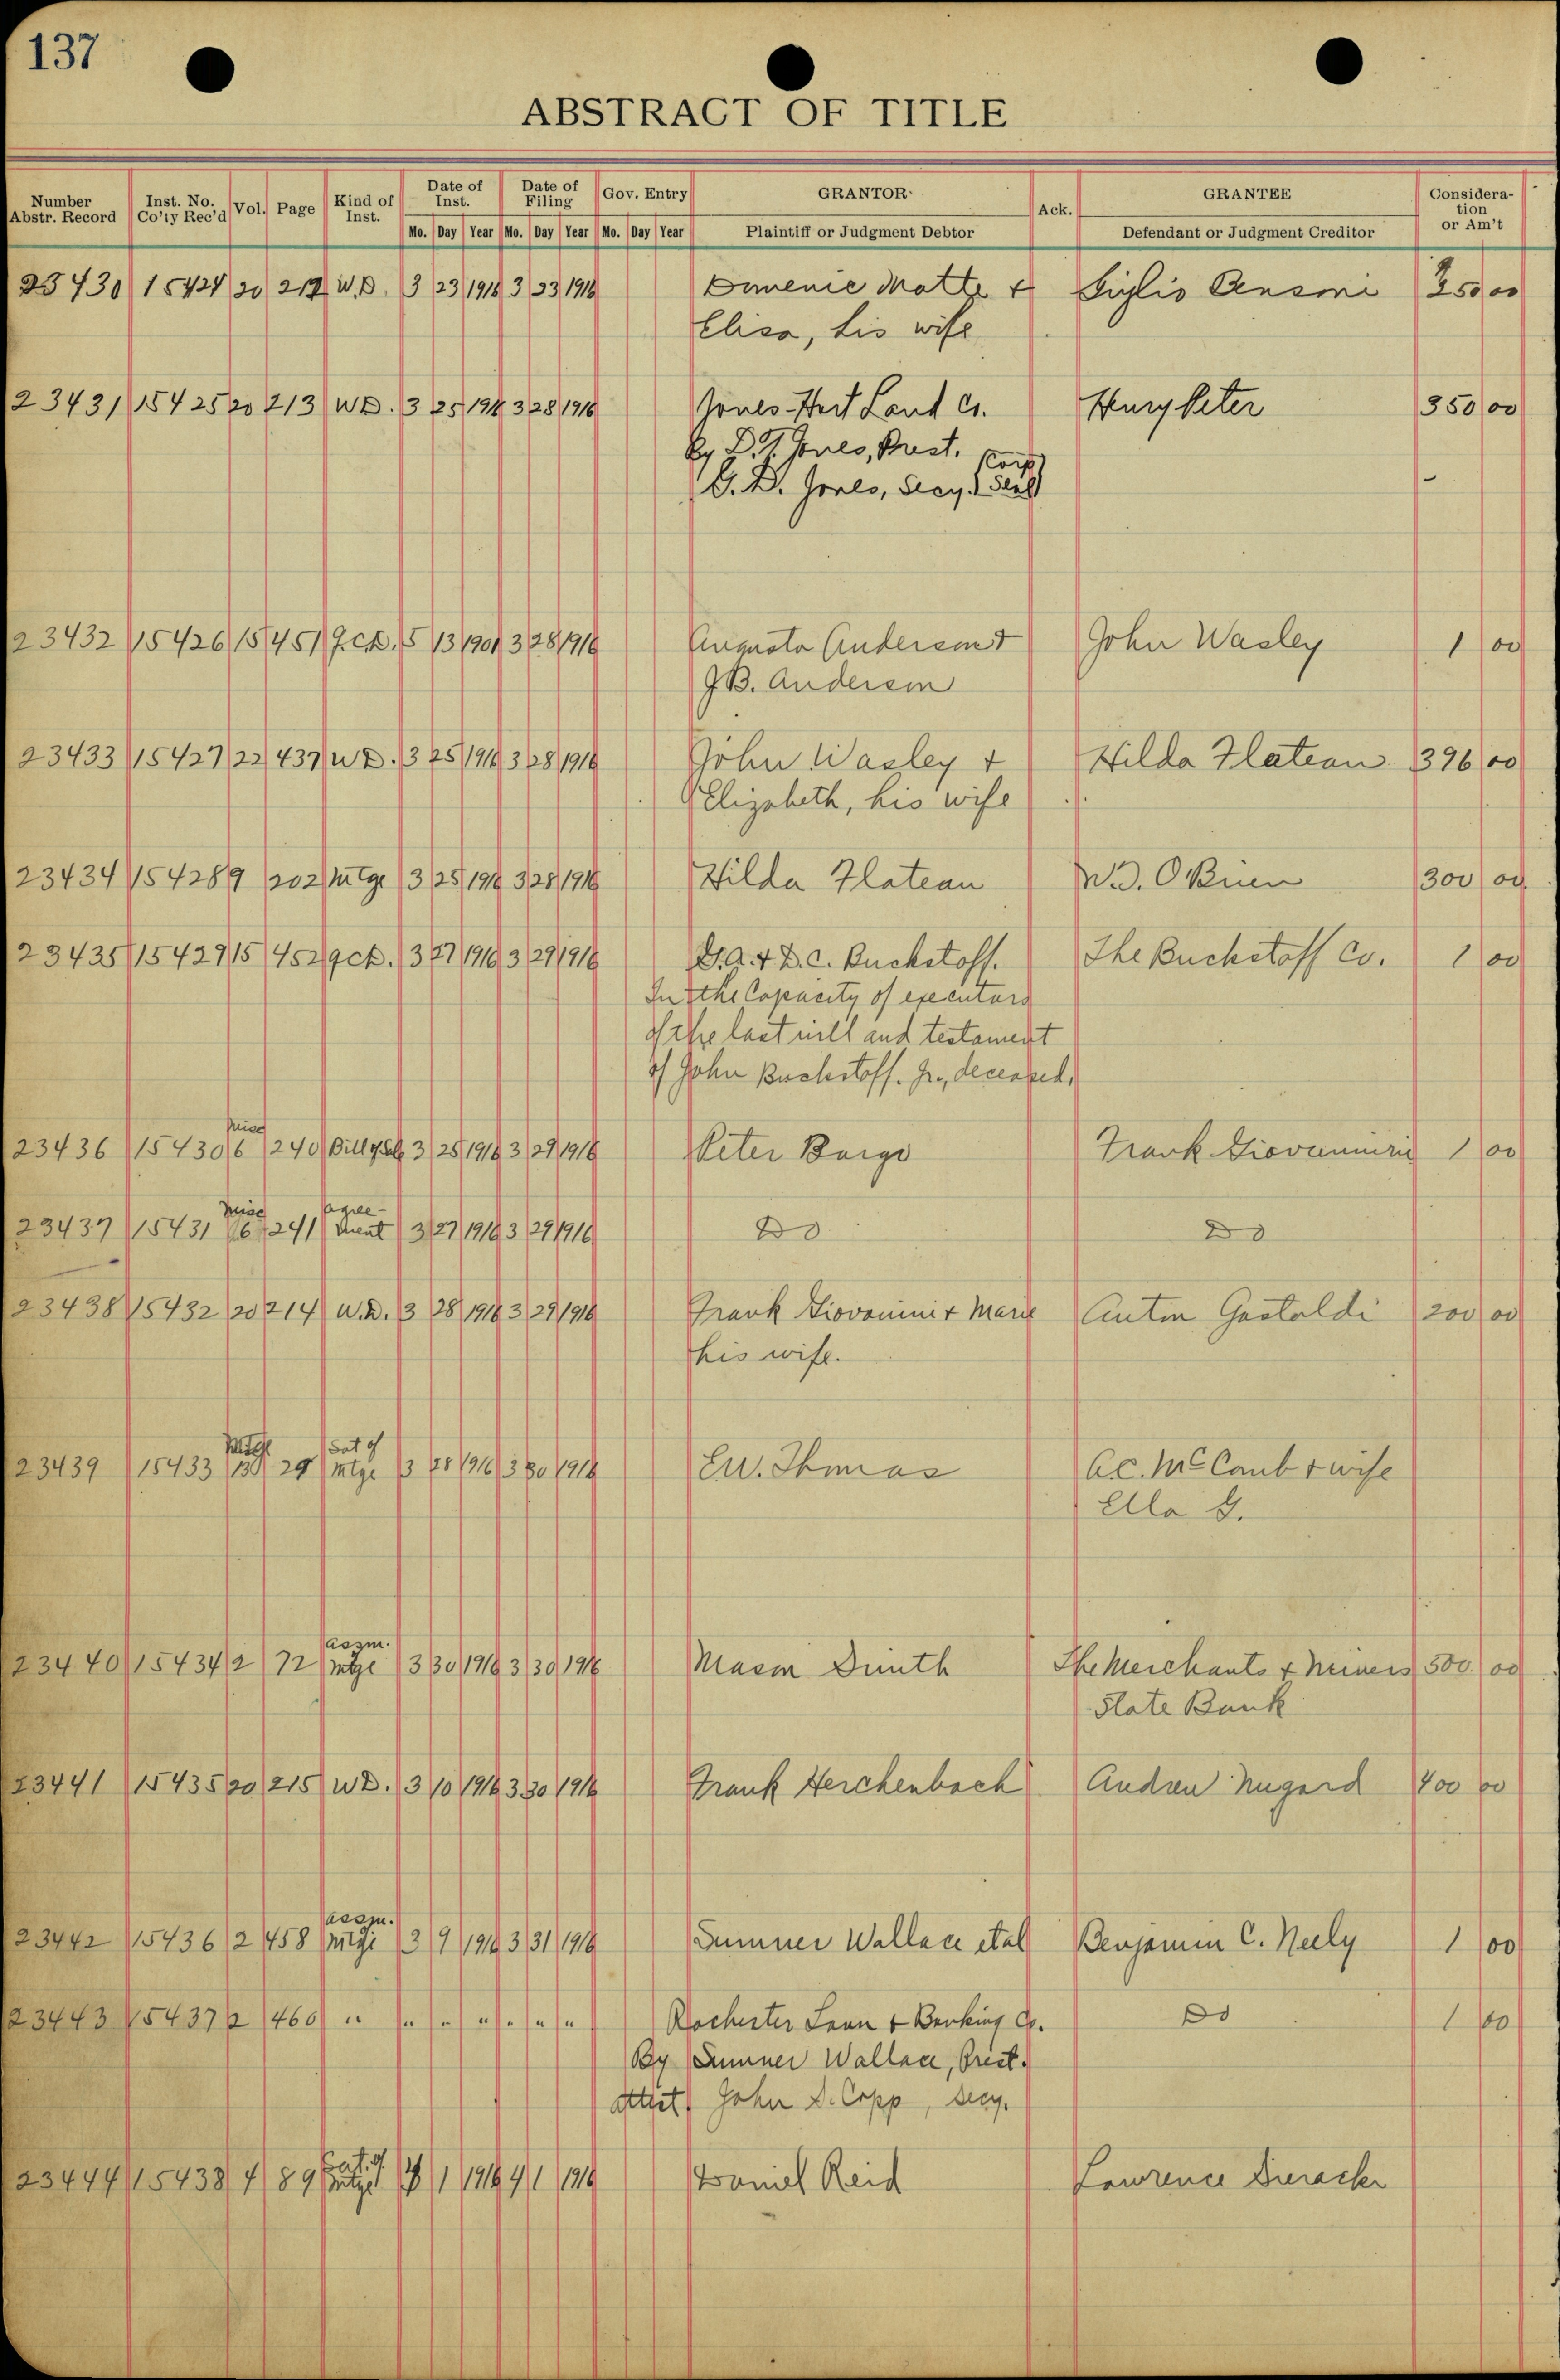 137
ABSTRACT OF TITLE
Number Abstr. Record Inst. No. Co'ty Rec'd Vol. Page Kind of Inst. Date of Inst. Date of Filing Gov. Entry GRANTOR Ack. GRANTEE Consideration or Am't
Mo. Day Year Mo. Day Year Mo. Day Year Plaintiff or Judgment Debtor Defendant or Judgment Creditor
23430 15424 20 212 W.D. 3 23 1916 3 23 1916 Domenic Matte + Giglio 250 00
Elisa, his wife
23431 15425 20 213 WD. 3 25 1916 3 28 1916 Jones-Hert Land Co. Hury Peter 350 00
By D.T. Jones, Prest.
G. D. Jones, Secy. (Corp Seal)
23432 15426 15 451 Q.C.D. 5 13 1901 3 28 1916 Augusta Anderson + John Wasley 1 00
J.B. Anderson
23433 15427 22 437 WD. 3 25 1916 3 28 1916 John Wasley + Hilda Flateau 396 00
Elizabeth, his wife
23434 15428 9 202 Mtge 3 25 1916 3 28 1916 Hilda Flateau W.D. OBrien 300 00
23435 15429 15 452 QCD. 3 27 1916 3 29 1916 D.A. + D.C. Buckstoff. The Buckstaff Co. 1 00
In the Capacity of executors
of the last will and testament
of John Buckstoff. Jr., deceased.
23436 15430 Misc 6 240 Bill of Sale 3 25 1916 3 29 1916 Peter Borgo Frank Giovannini 1 00
23437 15431 Misc 6 241 agree-ment 3 27 1916 3 29 1916 Do Do
23438 15432 20 214 W.D. 3 28 1916 3 29 1916 Frank Giovannini + Marie Anton Gastaldi 200 00
his wife.
23439 15433 Mtge 13 29 Sat of Mtge 3 28 1916 3 30 1916 E.W. Thomas A.C. McComb + wife
Ella G.
23440 15434 2 72 assm. mtge 3 30 1916 3 30 1916 Mason The Merchants & Miners 500 00
State Bank
23441 15435 20 215 WD. 3 10 1916 3 30 1916 Frank Herchenbach Andrew Nugard 400 00
23442 15436 2 458 assm. Mtge 3 9 1916 3 31 1916 Sumner Wallace et al Benjamin C. Neely 1 00
23443 15437 2 460 " " " " " " " Rochester Loan & Banking Co. Do 1 00
By Sumner Wallace, Prest.
attest John D. Copp, Secy.
23444 15438 4 89 Sat of Mtge 4 1 1916 4 1 1916 Daniel Reid Lawrence